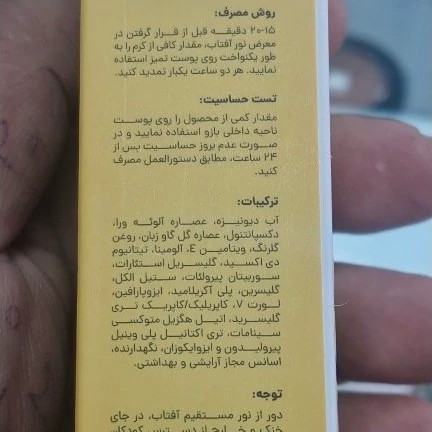 روش مصرف:
۱۵-۲۰ دقیقه قبل از قرار گرفتن در
معرض نور آفتاب، مقدار کافی از کرم را به
طور یکنواخت روی پوست تمیز استفاده
نمایید. هر دو ساعت یکبار تمدید کنید.
تست حساسیت:
مقدار کمی از محصول را روی پوست
ناحیه داخلی بازو استفاده نمایید و در
صورت عدم بروز حساسیت پس از
۲۴ ساعت، مطابق دستورالعمل مصرف
کنید.
ترکیبات:
آب دیونیزه، عصاره آلوئه ورا،
دکسپانتنول، عصاره گل گاو زبان، روغن
گلرنگ، ویتامین E، آلومینا، تیتانیوم
دی اکسید، گلیسریل استئارات،
سوربیتان پیرولئات، ستیل الکل،
گلیسرین، پلی آکریلامید، ایزوپارافین،
لورت ۷، کاپریلیک/کاپریک تری
گلیسرید، اتیل هگزیل متوکسی
سینامات، تری اکتانیل پلی وینیل
پیرولیدون و ایزوایکوزان، نگهدارنده،
اسانس مجاز آرایشی و بهداشتی.
توجه:
دور از نور مستقیم آفتاب، در جای
خنک و خارج از دسترس کودکان